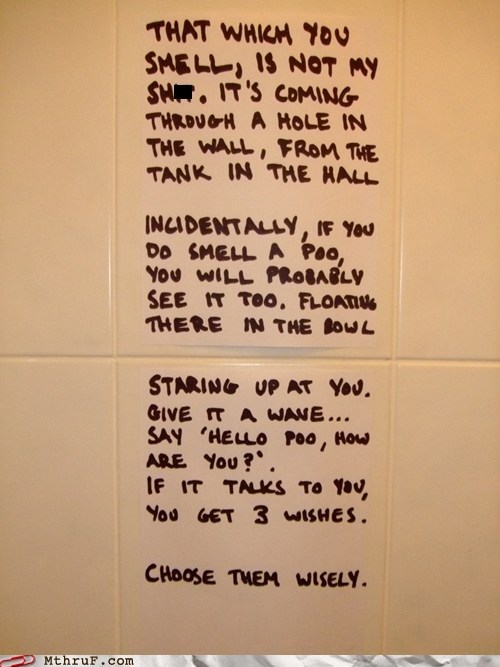 THAT WHICH YOU
SMELL, IS NOT MY
SH  . IT'S COMING
THROUGH A HOLE IN
THE WALL, FROM THE
TANK IN THE HALL
INCIDENTALLY, IF YOU
DO SMELL A POO,
YOU WILL PROBABLY
SEE IT TOO. FLOATING
THERE IN THE BOWL
STARING UP AT YOU.
GIVE IT A WAVE...
SAY 'HELLO POO, HOW
ARE YOU?'.
IF IT TALKS TO YOU,
YOU GET 3 WISHES.
CHOOSE THEM WISELY.
MThruF.com